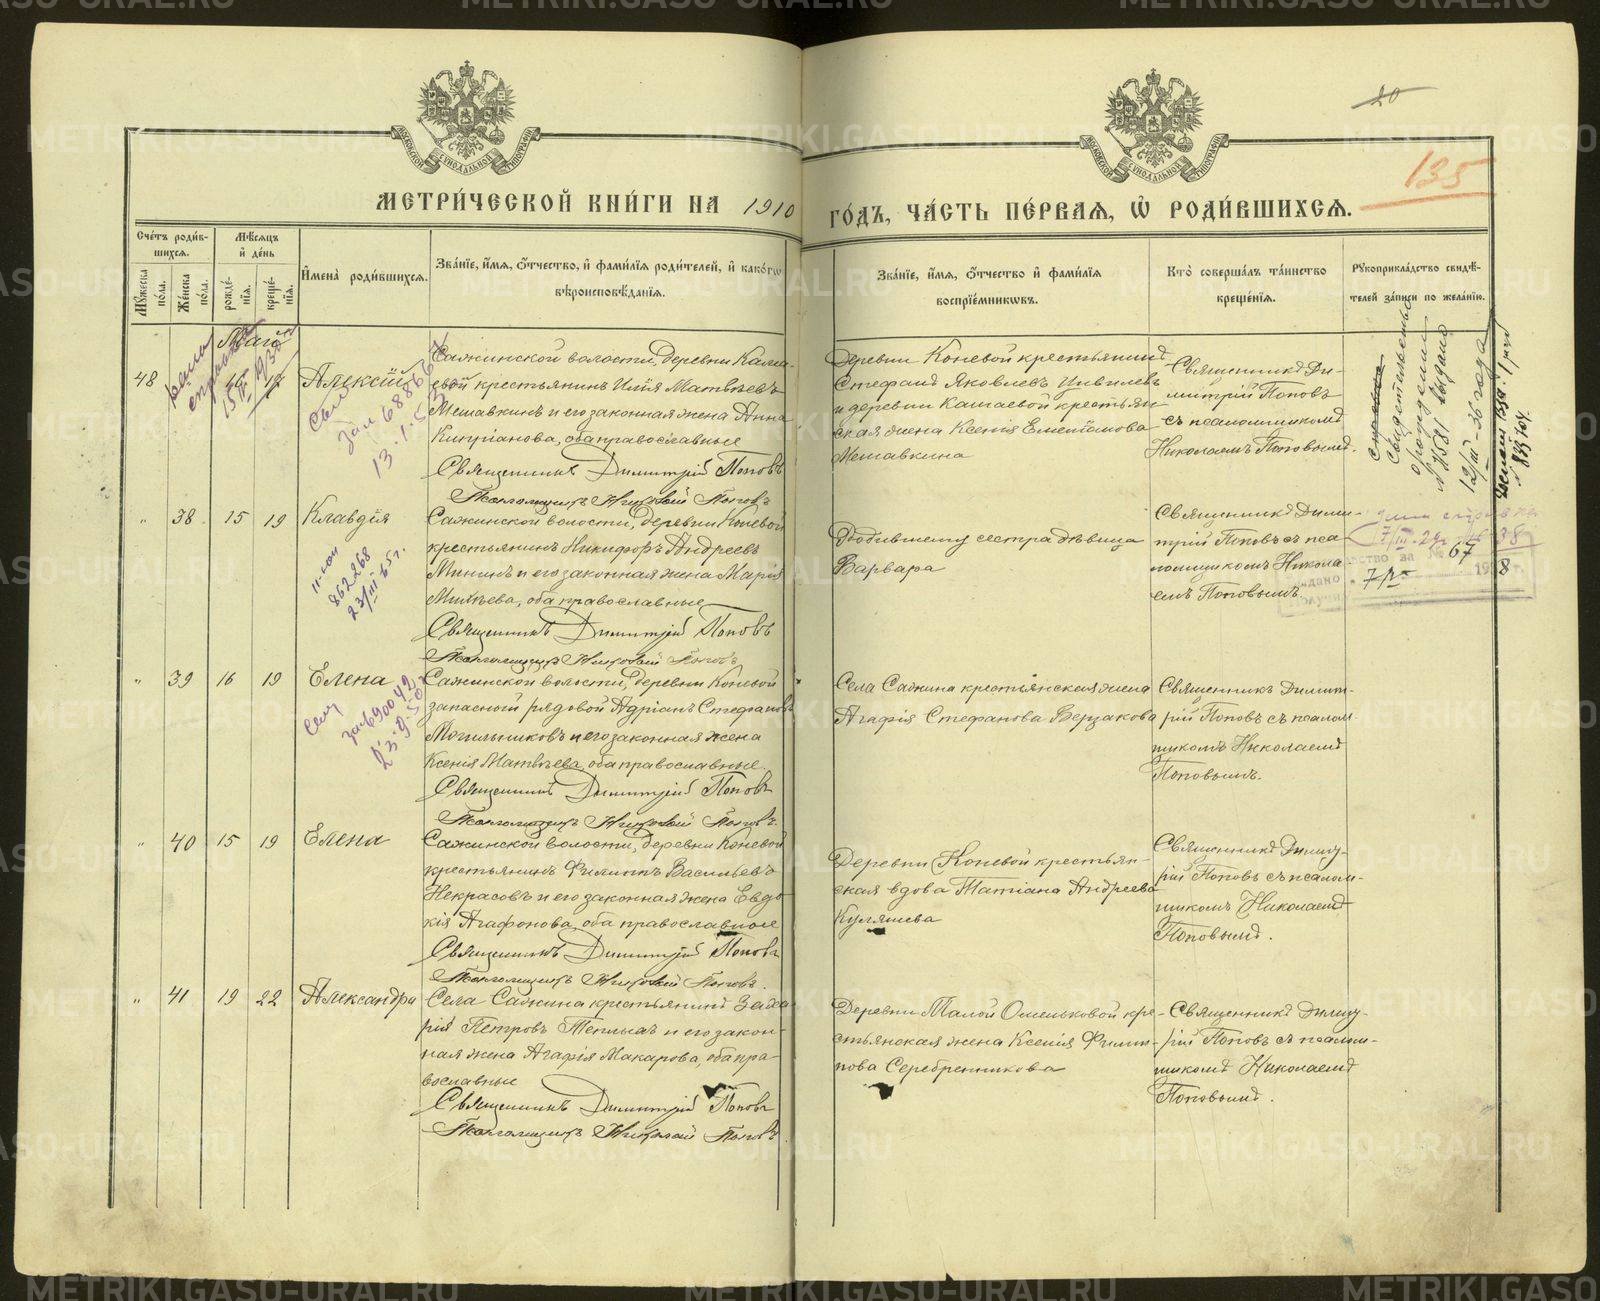 20
135
МОСКОВСКОЙ СУНОДАЛЬНОЙ ТИПОГРАФІИ
МОСКОВСКОЙ СУНОДАЛЬНОЙ ТИПОГРАФІИ
МЕТРИ́ЧЕСКОЙ КНИ́ГИ НА 1910 ГО́ДЪ, ЧА́СТЬ ПЕ́РВАѦ, Ѡ РОДИ́ВШИХСѦ.
Сче́тъ роди́в-
шихсѧ.
Мꙋжеска по́ла.
Же́нска по́ла.
Мѣ́сѧцъ
и҆ де́нь
рожде́-
нїѧ.
креще́-
нїѧ.
И҆мена̀ роди́вшихсѧ.
Зва́нїе, и҆́мѧ, ѻ҆́тчество, и҆ фами́лїѧ роди́телей, и҆ како́гѡ
вѣроисповѣ́данїѧ.
Зва́нїе, и҆́мѧ, ѻ҆́тчество и҆ фами́лїѧ
воспрїе́мникѡвъ.
Кто̀ соверша́лъ та́инство
креще́нїѧ.
Рꙋкоприкла́дство свидѣ́-
телей за́писи по жела́нїю.
Май
48
Алексій
Сажинской волости, деревни Каша-
евой крестьянинъ Илія Матвѣевъ
Мешавкинъ и его законная жена Анна
Кипріанова, оба православные
Священникъ Димитрій Поповъ
Псаломщикъ Николай Поповъ
Деревни Коневой крестьянинъ
Стефанъ Яковлевъ Цивилевъ
и деревни Кашаевой крестьян
ская жена Ксенія
Мешавкина
Священникъ Ди-
митрій Поповъ
съ псаломщикомъ
Николаемъ Поповымъ.
Свидетельство
о рождении
№ 581 выдано
12/III-36 года
зал 688667
13.1.53
„ 38 15 19 Клавдія
Сажинской волости, деревни Коневой
крестьянинъ Никифоръ Андреевъ
Мининъ и его законная жена Марія
Михѣева, оба православные
Священникъ Димитрій Поповъ
Псаломщикъ Николай Поповъ
сестра дѣвица
Варвара
Священникъ Дими-
трій Поповъ съ пса-
ломщикомъ Никола
емъ Поповымъ
862268
23/III 65 г.
67
7/IV
„ 39 16 19 Елена
Сажинской волости, деревни Коневой
запасной рядовой Адріанъ Стефановъ
Могильниковъ и его законная жена
Ксенія Матвѣева, оба православные.
Священникъ Димитрій Поповъ
Псаломщикъ Николай Поповъ.
Села Сажина крестьянская жена
Агафія Стефанова Верзакова
Священникъ Димит-
рій Поповъ съ псалом-
щикомъ Николаемъ
Поповымъ.
„ 40 15 19 Елена
Сажинской волости, деревни Коневой
крестьянинъ Филиппъ Васильевъ
Некрасовъ и его законная жена Евдо-
кія Агафонова, оба православные
Священникъ Димитрій Поповъ
Псаломщикъ Николай Поповъ.
Деревни Коневой крестьян-
ская вдова Татіана Андреева
Куляшева
Священникъ Димит-
рій Поповъ съ псалом-
щикомъ Николаемъ
Поповымъ.
„ 41 19 22 Александра
Села Сажина крестьянинъ Заха-
рій Петровъ Теплыхъ и его закон-
ная жена Агафія Макарова, оба пра-
вославные
Священникъ Димитрій Поповъ
Псаломщикъ Николай Поповъ.
Деревни Малой Омельковой кре-
стьянская жена Ксенія Филип-
пова Серебренникова
Священникъ Димит-
рій Поповъ съ псалом-
щикомъ Николаемъ
Поповымъ.
METRIKI.GASO-URAL.RU